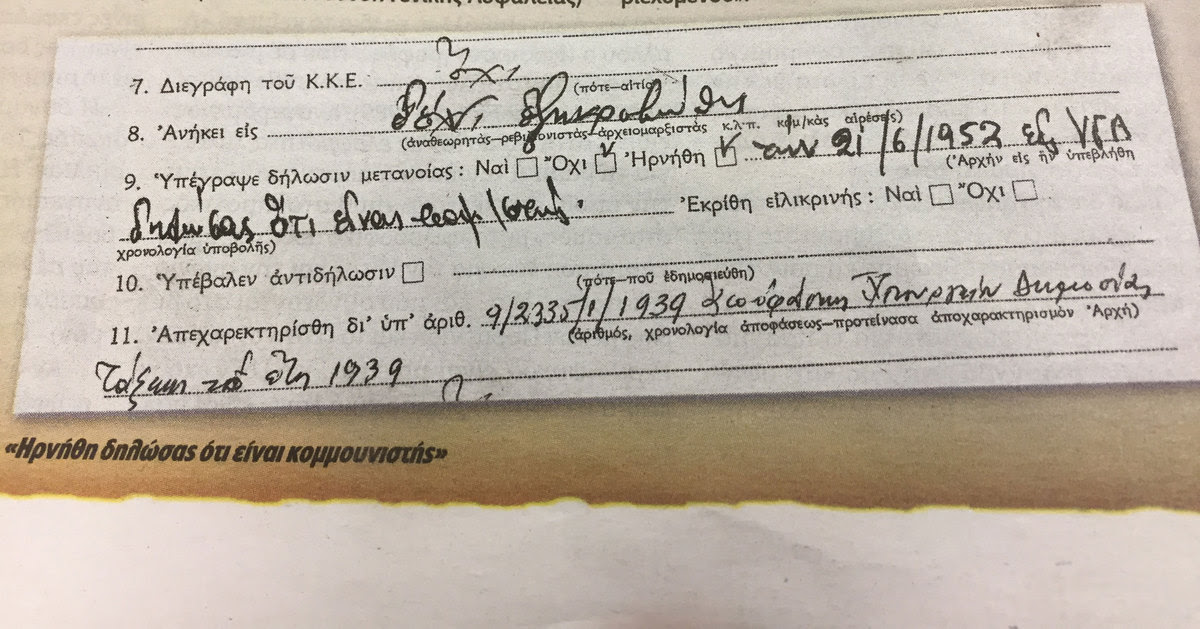 7. Διεγράφη τοῦ Κ.Κ.Ε. ὄχι
(πότε—αἰτία)
8. Ἀνήκει εἰς δέν ἐξηκριβώθη
(ἀναθεωρητὰς—ρεβιζιονιστὰς—ἀρχειομαρξιστὰς κ.λ.π. κομ/κὰς αἱρέσεις)
9. Ὑπέγραψε δήλωσιν μετανοίας: Ναὶ Ὄχι Ἠρνήθη 21/6/1952
(Ἀρχὴν εἰς ἣν ὑπεβλήθη
δηλώσας ὅτι εἶναι κομ/στής. Ἐκρίθη εἰλικρινής: Ναὶ Ὄχι
χρονολογία ὑποβολῆς)
10. Ὑπέβαλεν ἀντιδήλωσιν
(πότε—ποῦ ἐδημοσιεύθη)
11. Ἀπεχαρεκτηρίσθη δι' ὑπ' ἀριθ. 9/2335/1/1939 Ὑπουργείου Δημοσίας
(ἀριθμός, χρονολογία ἀποφάσεως—προτείνασα ἀποχαρακτηρισμὸν Ἀρχή)
Τάξεως τοῦ 1939
«Ηρνήθη δηλώσας ότι είναι κομμουνιστής»